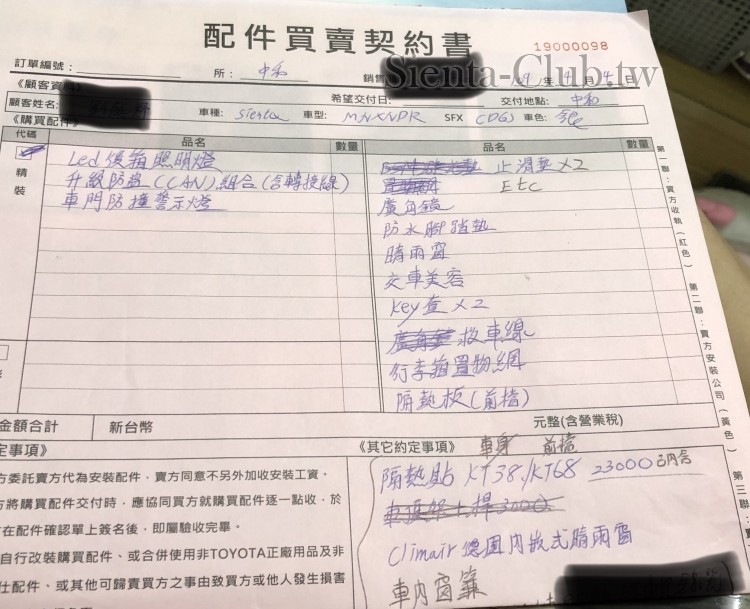 配件買賣契約書
19000098
Sienta-Club.tw
訂單編號：
所：中和
銷售
年 4 月 4 日
《顧客資
希望交付日：
交付地點：中和
顧客姓名：
車種：Sienta
車型：MNXNPR
SFX
車色：
《購買配件》
代碼
品名
數量
品名
數量
精裝
Led後箱照明燈
升級防盜(CAN)組合(含轉接線)
車門防撞警示燈
止滑墊×2
Etc
廣角鏡
防水腳踏墊
晴雨窗
交車美容
key套×2
救車線
行李箱置物網
隔熱板(前檔)
金額合計
新台幣
元整(含營業稅)
定事項》
《其它約定事項》
車身 前檔
隔熱貼 KT38/KT68 23000已內含
車頂架+桿3000
Climair德國內嵌式晴雨窗
車內窗簾
方委託賣方代為安裝配件，賣方同意不另外加收安裝工資。
方將購買配件交付時，應協同買方就購買配件逐一點收，於
在配件確認單上簽名後，即屬驗收完畢。
自行改裝購買配件、或合併使用非TOYOTA正廠用品及非
仕配件、或其他可歸責買方之事由致買方或他人發生損害
第一聯：賣方收執(紅色)
第二聯：賣方安裝公司(黃色)
第三聯：買